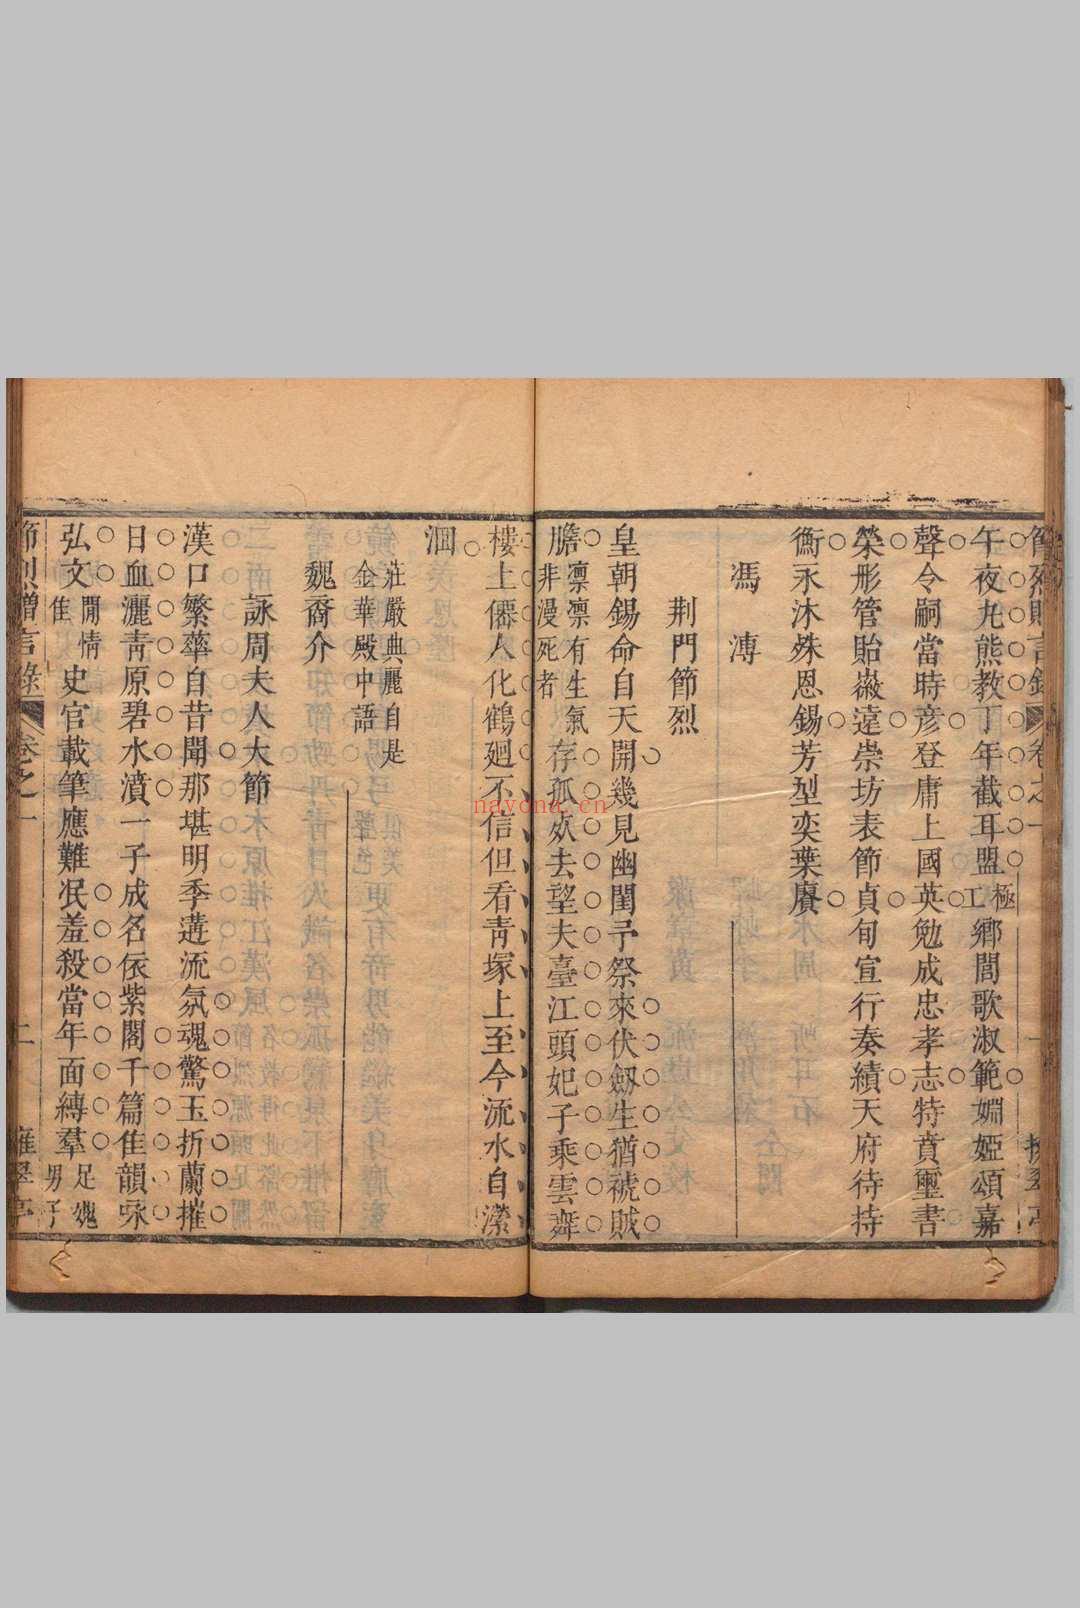 節烈贈言錄 卷之一
午夜九熊教丁年截耳盟極工鄉閭歌淑範婣婭頌嘉
聲令嗣當時彥登庸上國英勉成忠孝志特賁璽書
榮形管貽嶶遠崇坊表節貞旬宣行奏績天府待持
衡永沐殊恩錫芳型奕葉賡
馮溥
荆門節烈
皇朝錫命自天開幾見幽閨予祭來伏劒生猶褫賊
膽凛凛有生氣非漫死者存孤歿去望夫臺江頭妃子乘雲舞
樓上僊人化鶴廻不信但看靑塚上至今流水自瀠
洄
莊嚴典麗自是
金華殿中語
魏裔介
詠周夫人大節
漢口繁華自昔聞那堪明季遘流氛魂驚玉折蘭摧
日血灑靑原碧水濆一子成名依紫閣千篇隹韻咏
弘文閒情隹史官載筆應難泯羞殺當年面縛羣足媿男子
節烈贈言錄 卷之一 二
nayona.cn